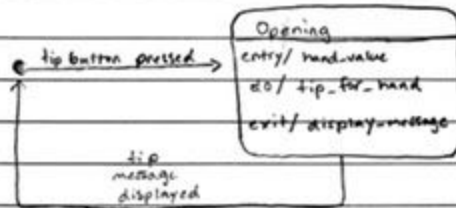 Opening
tip button pressed
entry/ hand_value
do/ tip_for_hand
exit/ display_message
tip
message
displayed